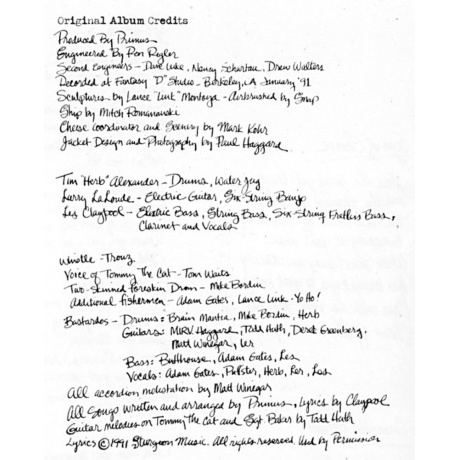 Original Album Credits
Produced By Primus
Engineered By Ron Rigler
Second Engineers - Dave Luke, Nancy Scharlau, Drew Walters
Recorded at Fantasy "D" Studio - Berkeley, CA January '91
Sculptures by Lance "Link" Montoya - Airbrushed by Snap
Ship by Mitch Romanauski
Cheese Coordinator and Scenery by Mark Kohr
Jacket Design and Photography by Paul Haggard
Tim "Herb" Alexander - Drums, Water Jug
Larry LaLonde - Electric Guitar, Six-String Banjo
Les Claypool - Electric Bass, String Bass, Six-String Fretless Bass,
Clarinet and Vocals
Whistle - Trouz
Voice of Tommy The Cat - Tom Waits
Two-Skinned Foreskin Drum - Mike Bordin
Additional fishermen - Adam Gates, Lance Link - Yo Ho!
Bastardos - Drums: Brain Mantia, Mike Bordin, Herb
Guitars: MIRV Haggard, Todd Huth, Derek Greenberg,
Matt Winegar, Ler
Bass: Butthouse, Adam Gates, Les
Vocals: Adam Gates, Puffster, Herb, Ler, Les
All accordion molestation by Matt Winegar
All Songs written and arranged by Primus, Lyrics by Claypool
Guitar melodies on Tommy The Cat and Sgt. Baker by Todd Huth
Lyrics ©1991 Sturgeon Music. All rights reserved. Used by Permission